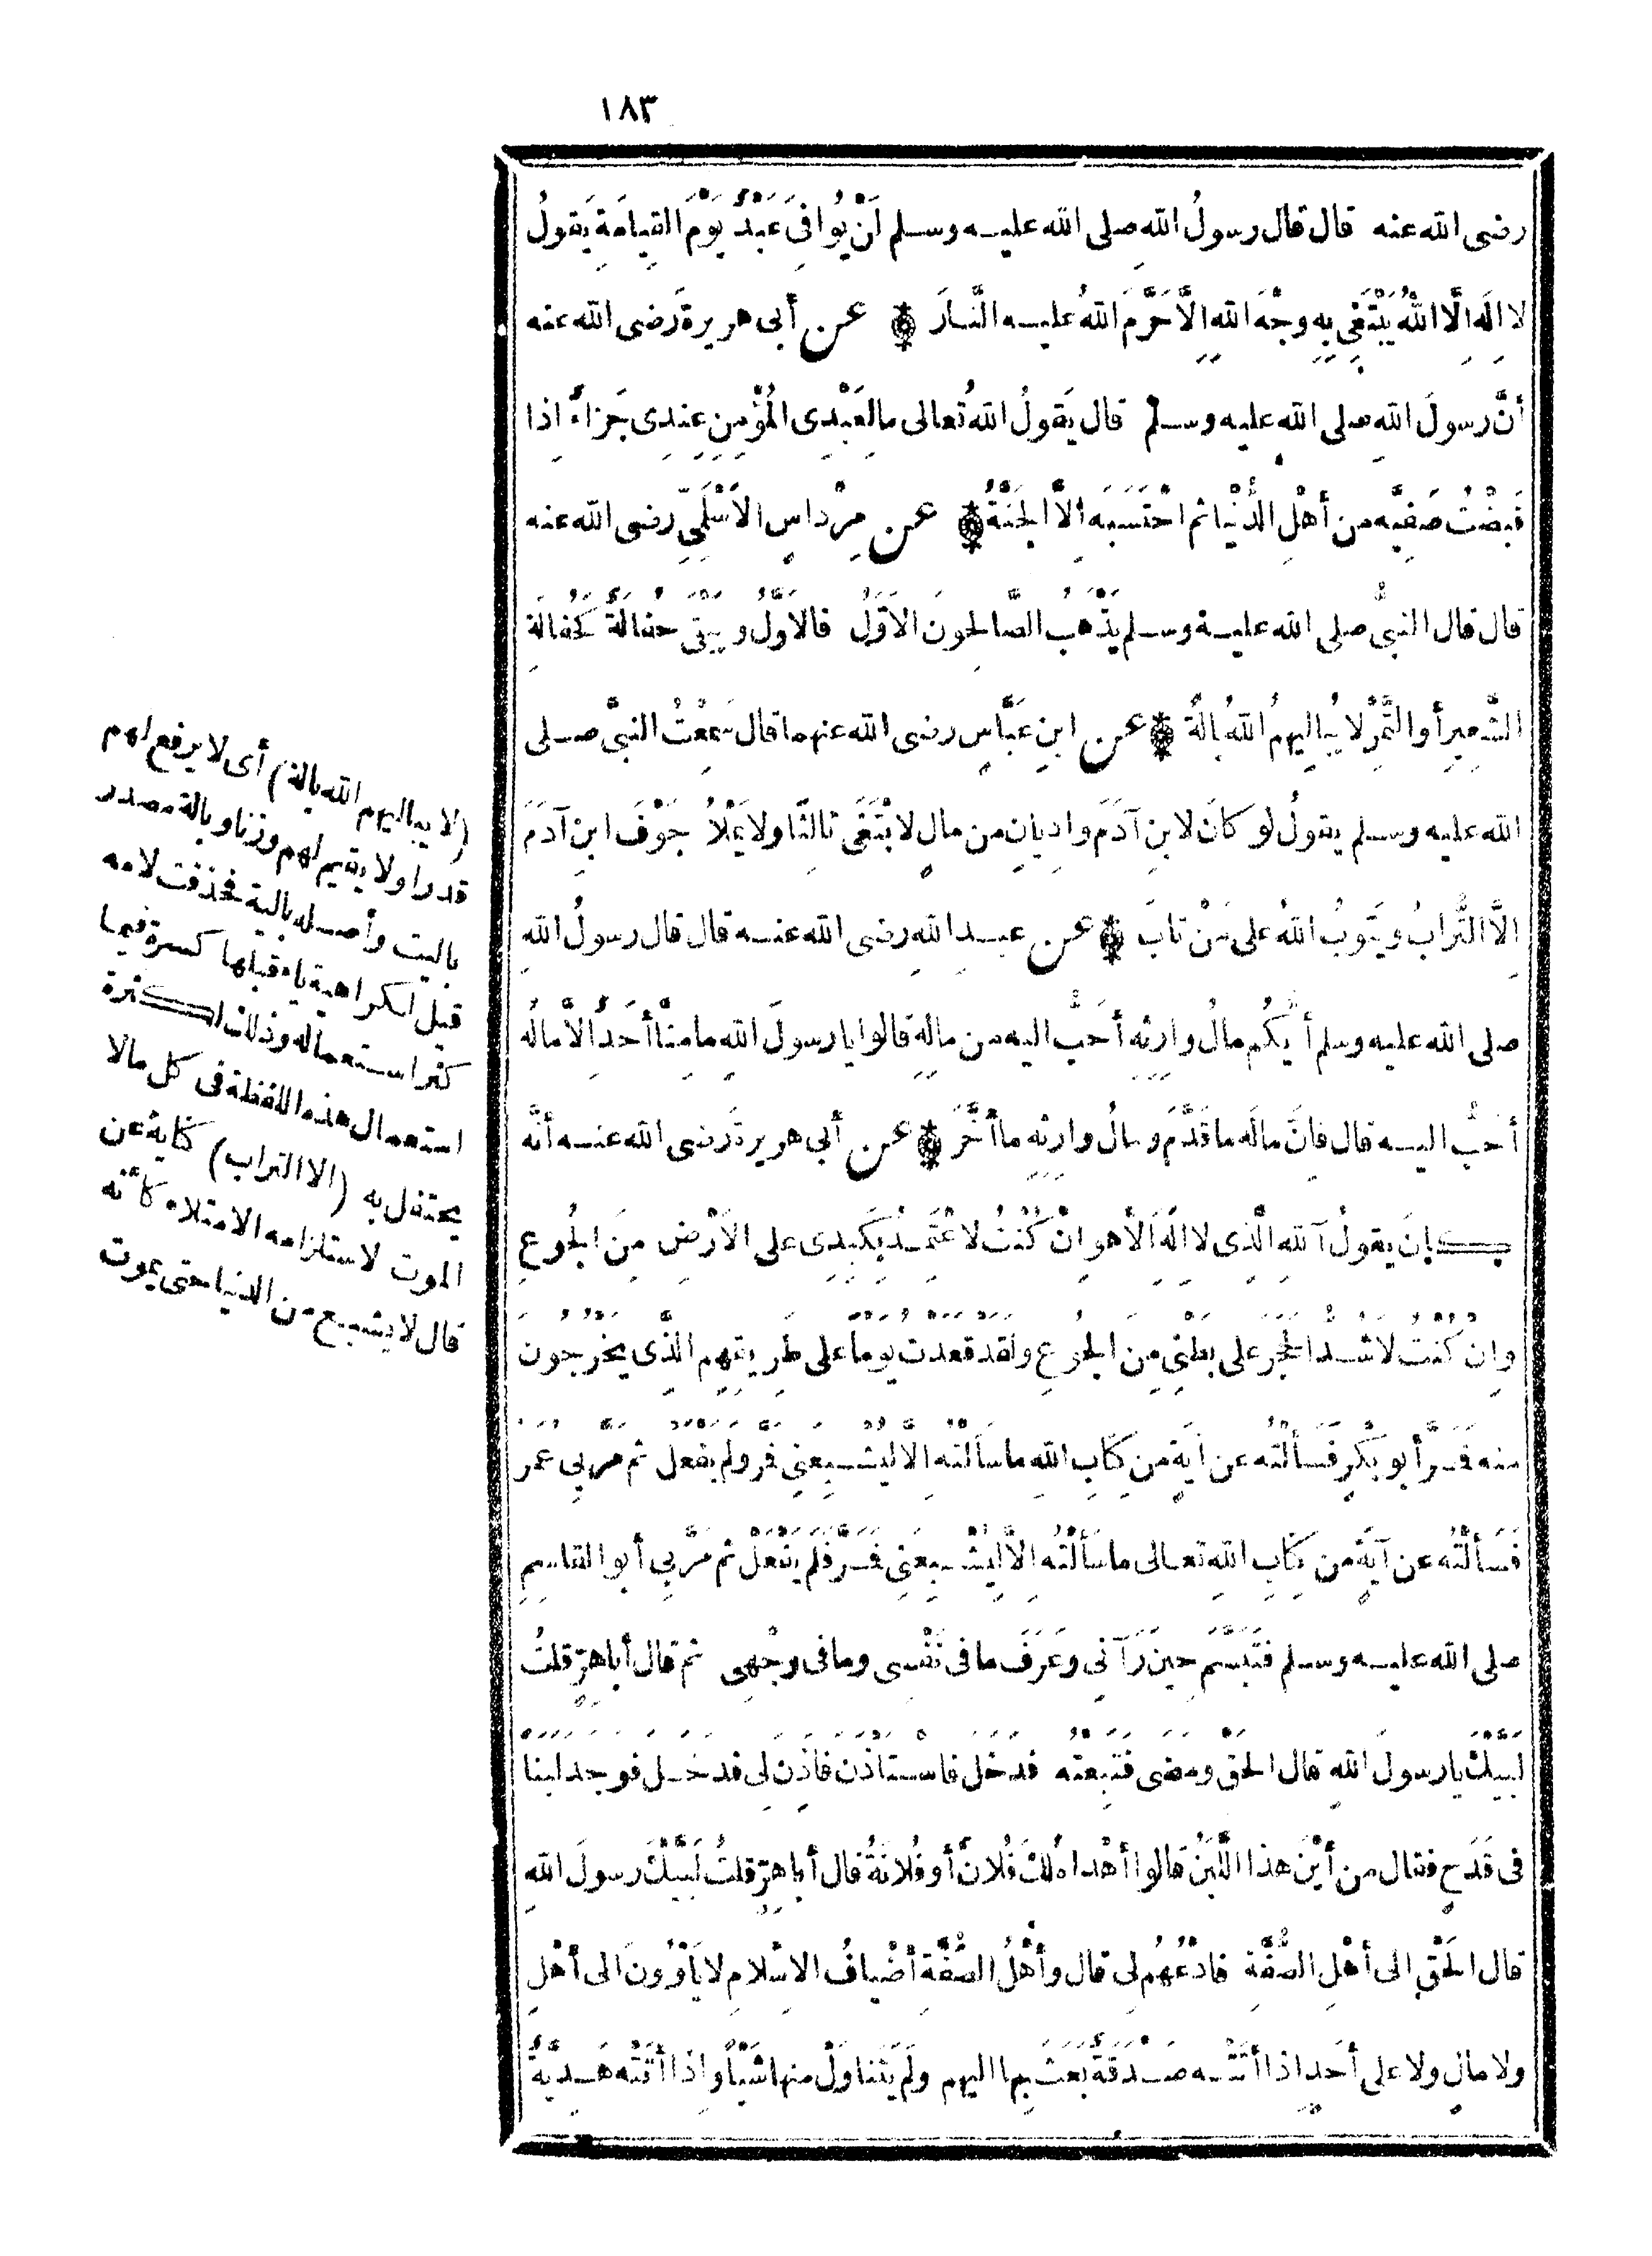 ١٨٣
رضى الله عنه قال قال رسولُ اللهِ صلى الله عليه وسلم لَنْ يُوافِىَ عَبْدٌ يَوْمَ القِيامَةِ يَقولُ
لا اِلَهَ اِلَّا اللهُ يَبْتَغِى بِهِ وجْهَ اللهِ اِلَّا حَرَّمَ اللهُ عليه النَّارَ * عن أبى هريرةَ رَضى الله عنه
أنَّ رسولَ اللهِ صلى الله عليه وسلم قال يَقولُ اللهُ تعالى ما لِعَبْدِى المُؤْمِنِ عِنْدِى جَزاءٌ اِذا
قَبَضْتُ صَفِيَّه من أهْلِ الدُّنْيا ثم احْتَسَبَه اِلَّا الجَنَّةُ * عن مِرْداسٍ الاَسْلَمِىِّ رضى الله عنه
قال قال النبىُّ صلى الله عليه وسلم يَذْهَبُ الصَّالِحونَ الاَوَّلُ فالاَوَّلُ ويَبْقَى حُفالَةٌ كَحُفالَةِ
الشَّعِيرِ أو التَّمْرِ لا يُبالِيهِمُ اللهُ بالَةً * عن ابنِ عَبَّاسٍ رضى الله عنهما قال سَمِعْتُ النبىَّ صلى
الله عليه وسلم يقولُ لو كانَ لابنِ آدَمَ وادِيانِ من مالٍ لابْتَغَى ثالثًا ولا يَمْلاُ جَوْفَ ابنِ آدَمَ
اِلَّا التُّرابُ ويَتُوبُ اللهُ على مَنْ تابَ * عن عبدِ اللهِ رضى الله عنه قال قال رسولُ اللهِ
صلى الله عليه وسلم أيُّكُم مالُ وارِثِهِ أحَبُّ اليه من مالِهِ قالوا يا رسولَ اللهِ ما مِنَّا أحَدٌ اِلَّا مالُه
أحَبُّ اليه قال فاِنَّ مالَه ما قَدَّمَ ومالُ وارِثِهِ ما أخَّرَ * عن أبى هريرةَ رَضى الله عنه أنَّه
كانَ يقولُ آللهِ الَّذِى لا اِلَهَ اِلَّا هو اِنْ كُنْتُ لاَعْتَمِدُ بِكَبِدِى على الاَرْضِ مِنَ الجُوعِ
واِنْ كُنْتُ لاَشُدُّ الحَجَرَ على بَطْنِى مِنَ الجُوعِ ولَقَدْ قَعَدْتُ يَوْمًا على طَرِيقِهِم الَّذِى يَخْرُجُونَ
منه فَمَرَّ أبو بَكْرٍ فَسَألْتُه عن آيَةٍ من كِتابِ اللهِ ما سَألْتُه اِلَّا لِيُشْبِعَنِى فَمَرَّ ولَمْ يَفْعَلْ ثم مَرَّ بِى عُمَرُ
فَسَألْتُه عن آيَةٍ من كِتابِ اللهِ تعالى ما سَألْتُه اِلَّا لِيُشْبِعَنِى فَمَرَّ فَلَمْ يَفْعَلْ ثم مَرَّ بِى أبو القاسِمِ
صلى الله عليه وسلم فتَبَسَّمَ حِينَ رَآنِى وعَرَفَ ما فى نَفْسِى وما فى وجْهِى ثم قال أبا هِرٍّ قلتُ
لَبَّيْكَ يا رسولَ اللهِ قال الحَقْ ومضَى فتَبِعْتُه فدَخَلَ فاسْتاذَنَ فاَذِنَ لِى فدَخَلَ فوَجَدَ لَبَنًا
فى قَدَحٍ فقال من أيْنَ هذا اللَّبَنُ قالوا أهْداهُ لكَ فُلانٌ أو فُلانَةُ قال أبا هِرٍّ قلتُ لَبَّيْكَ رسولَ اللهِ
قال الحَقْ الى أهْلِ الصُّفَّةِ فادْعُهُم لِى قال وأهْلُ الصُّفَّةِ أضْيافُ الاِسْلامِ لا يَأوُونَ الى أهْلٍ
ولا مالٍ ولا على أحَدٍ اذا أتَتْه صَدَقَةٌ بَعَثَ بِها اليهم ولَمْ يَتَناوَلْ منها شَيْئًا واِذا أتَتْه هَدِيَّةٌ
(لا يباليهم الله بالة) أى لا يرفع لهم
قدرا ولا يقيم لهم وزنا وبالة مصدر
باليت وأصله بالية فحذفت لامه
قيل لكراهية ياء قبلها كسرة فيما
كثر استعماله وذلك لكثرة
استعمال هذه اللفظة فى كل مالا
يحتفل به (الا التراب) كناية عن
الموت لاستلزامه الامتلاء كأنه
قال لا يشبع من الدنيا حتى يموت